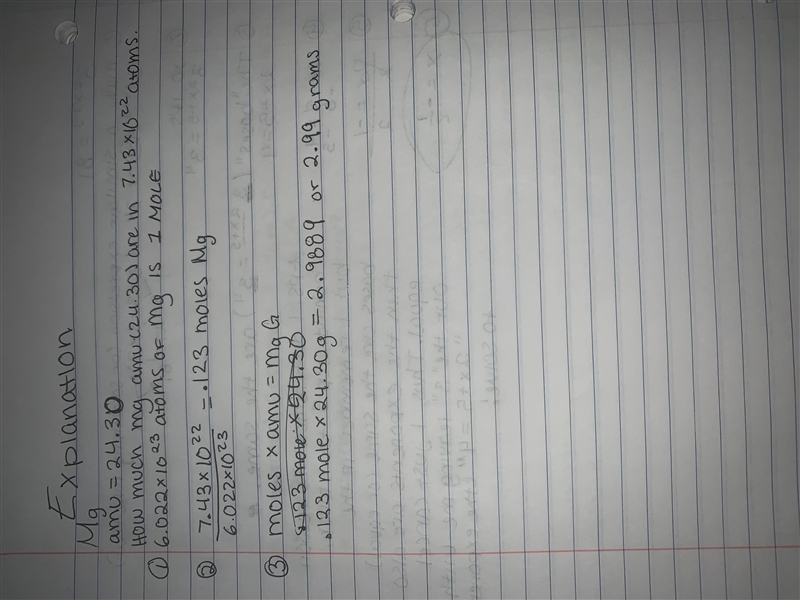 Explanation
Mg
amu = 24.30
How much mg amu(24.30) are in 7.43×10²² atoms.
① 6.022×10²³ atoms or Mg is 1 MOLE
② 7.43×10²² / 6.022×10²³ = .123 moles Mg
③ moles × amu = mg G
.123 mole × 24.30
.123 mole × 24.30g = 2.9889 or 2.99 grams